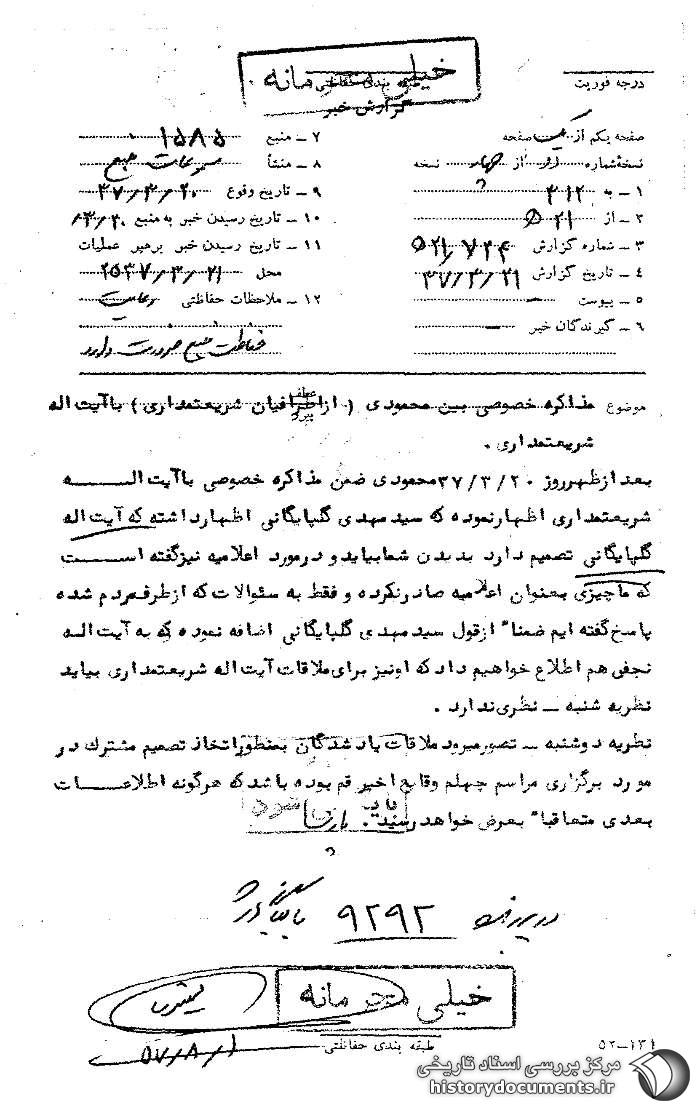 خیلی محرمانه
درجه فوریت
طبقه بندی حفاظتی
گزارش خبر
صفحه یکم از یک صفحه
نسخهٔ شماره دو از چهار نسخه
۱ ـ به ۳۱۲
۲ ـ از ۲۱ ه
۳ ـ شماره گزارش ۵۲۱/۷۴۴
۴ ـ تاریخ گزارش ۳۷/۳/۲۱
۵ ـ پیوست ـ
۶ ـ گیرندگان خبر ـ
۷ ـ منبع ۱۵۸۵
۸ ـ منشأ منبع
۹ ـ تاریخ وقوع ۳۷/۳/۲۰
۱۰ ـ تاریخ رسیدن خبر به منبع ۳/۲۰/
۱۱ ـ تاریخ رسیدن خبر برهبر عملیات
محل ۲۵۳۷/۳/۲۱
۱۲ ـ ملاحظات حفاظتی رعایت
حفاظت منبع ضرورت دارد
موضوع مذاکره خصوصی بین محمودی ( از اطرافیان شریعتمداری ) با آیت اله
شریعتمداری .
بعد از ظهر روز ۳۷/۳/۲۰ محمودی ضمن مذاکره خصوصی با آیت اله
شریعتمداری اظهار نموده که سید مهدی گلپایگانی اظهار داشته که آیت اله
گلپایگانی تصمیم دارد بدیدن شما بیاید و در مورد اعلامیه نیز گفته است
که ما چیزی بعنوان اعلامیه صادر نکرده و فقط به سئوالات که از طرف مردم شده
پاسخ گفته ایم ضمنا" از قول سید مهدی گلپایگانی اضافه نموده که به آیت اله
نجفی هم اطلاع خواهیم داد که او نیز برای ملاقات آیت اله شریعتمداری بیاید
نظریه شنبه ـ نظری ندارد .
نظریه دوشنبه ـ تصور میرود ملاقات یاد شدگان بمنظور اتخاذ تصمیم مشترک در
مورد برگزاری مراسم چهلم وقایع اخیر قم بوده باشد که هرگونه اطلاعات
بعدی متعاقبا" بعرض خواهد رسید . پارسا
در پرونده ۹۲۹۲
خیلی محرمانه
طبقه بندی حفاظتی
۵۷/۸/۱
۵۲-۱۳۱
مرکز بررسی اسناد تاریخی
historydocuments.ir